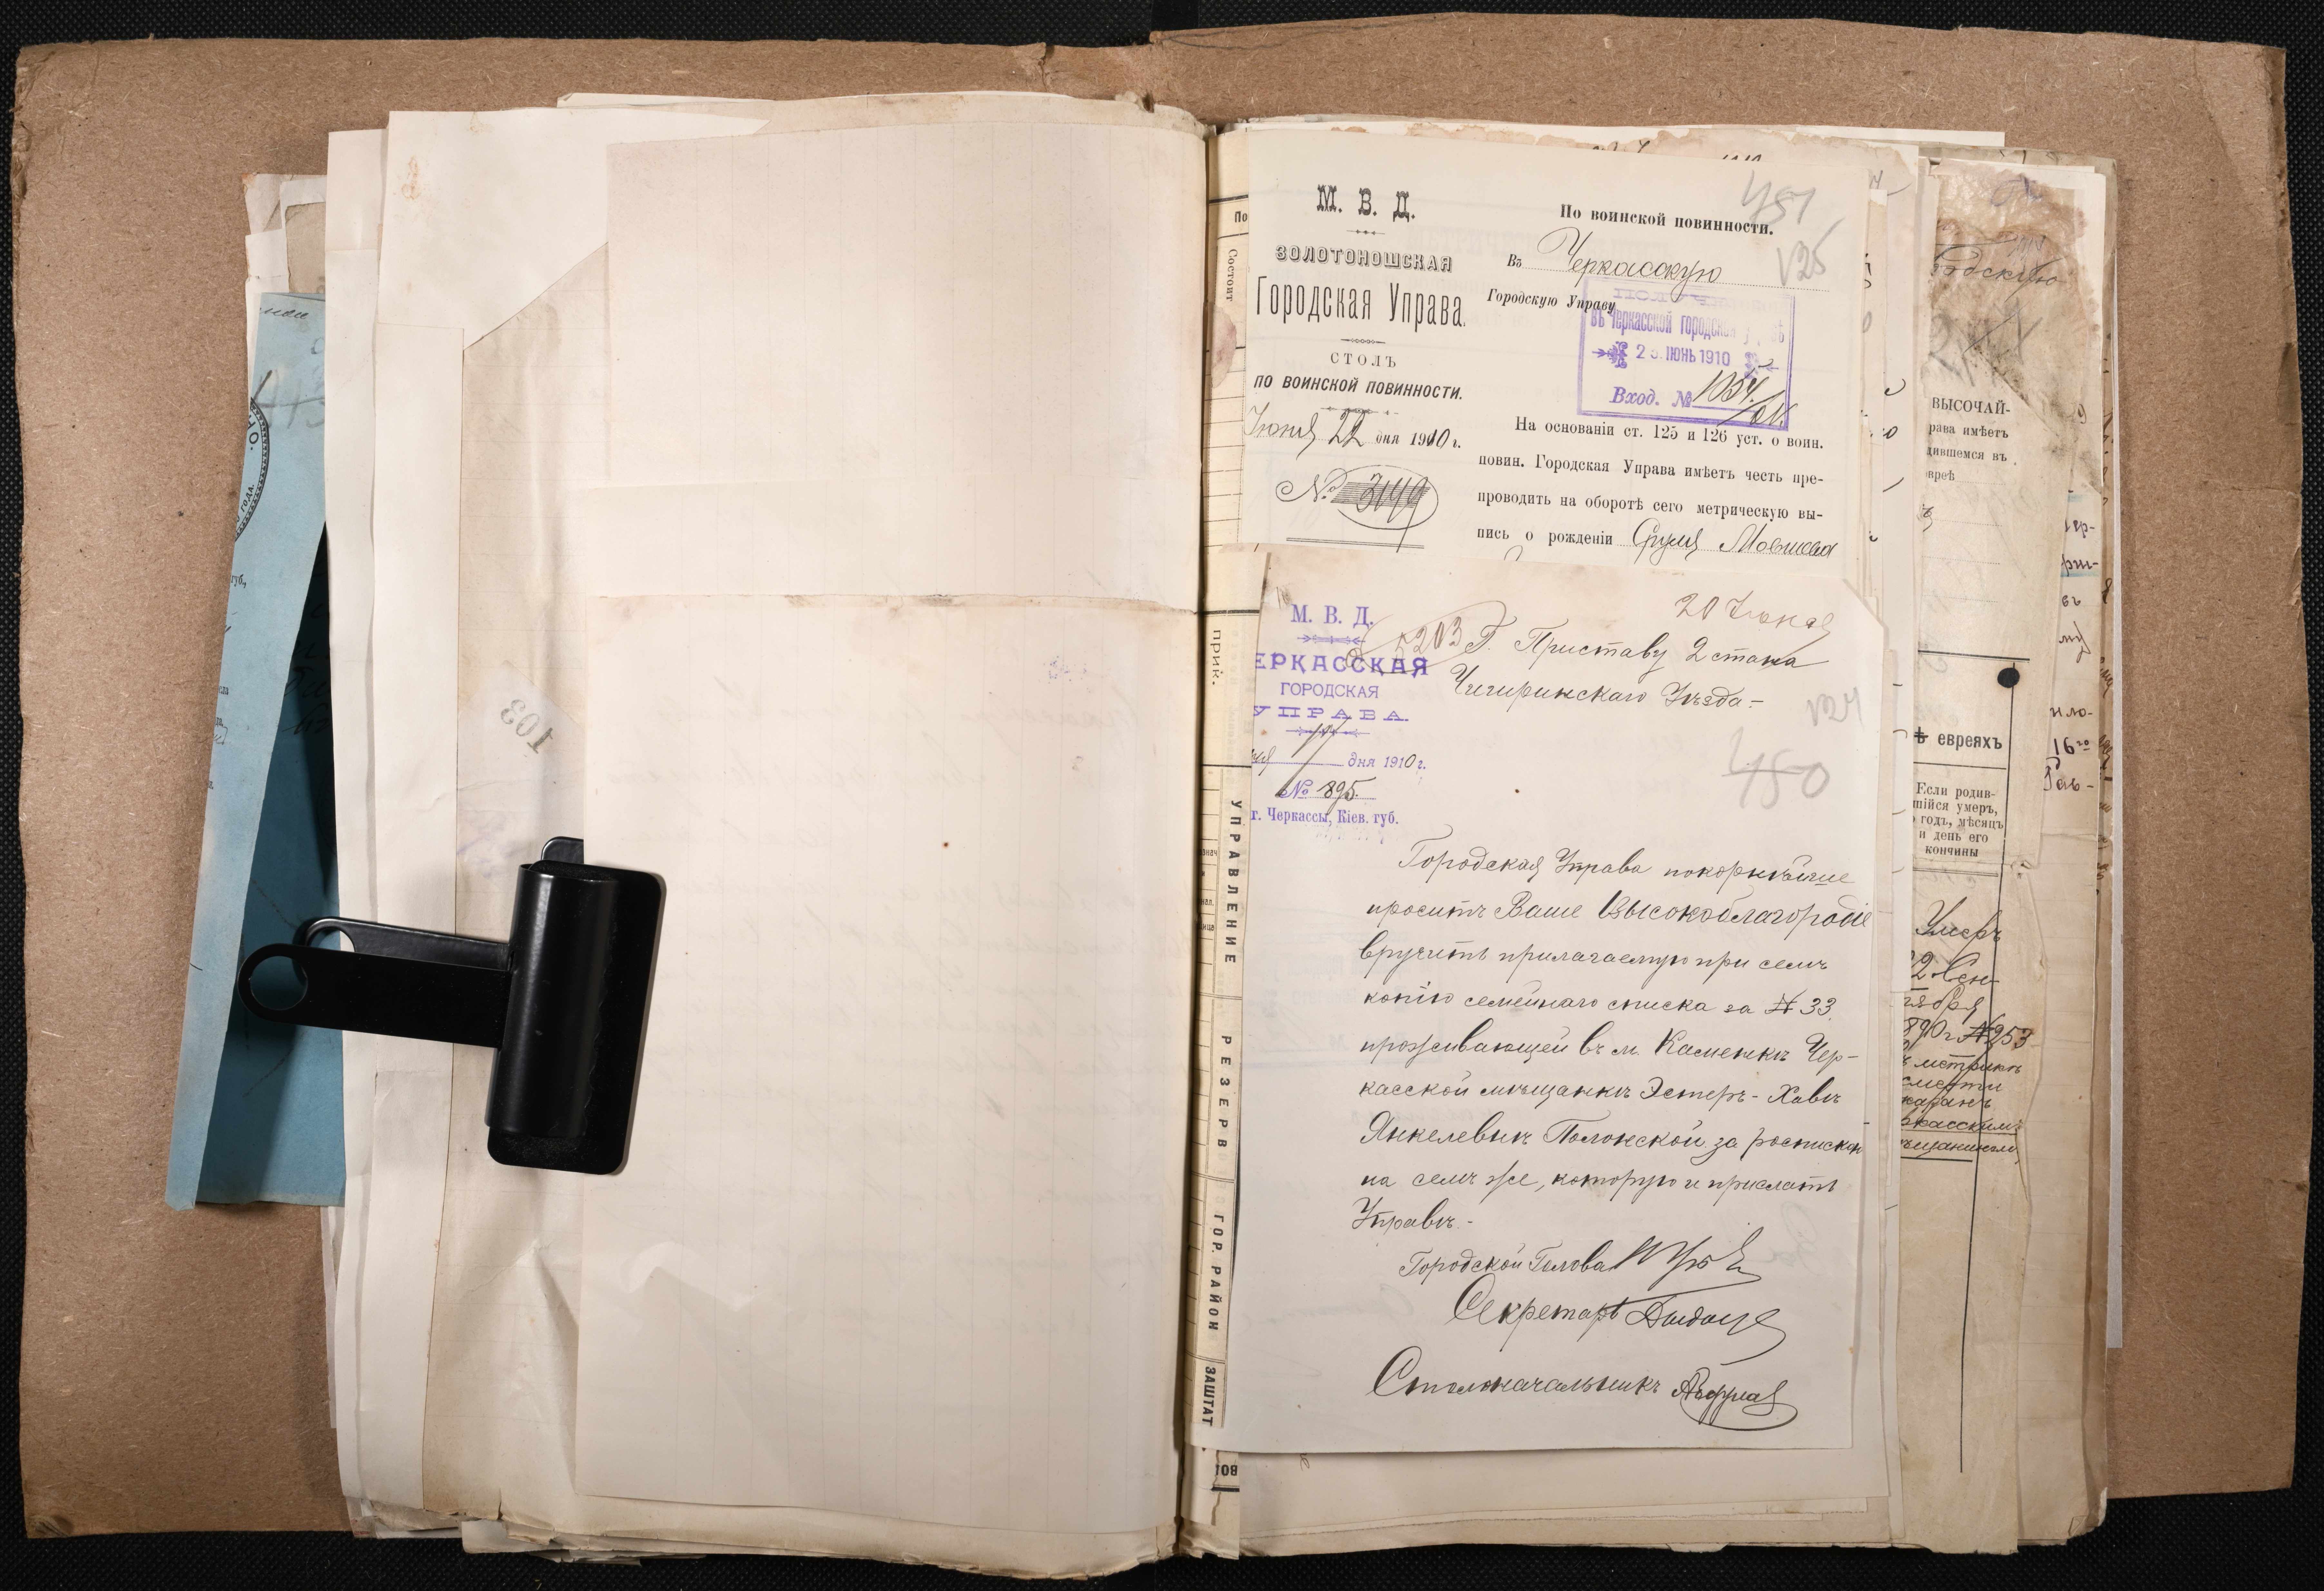 М. В. Д.
ЗОЛОТОНОШСКАЯ
Городская Управа.
СТОЛЪ
ПО ВОИНСКОЙ ПОВИННОСТИ.
Іюня 22 дня 1910 г.
№ 3149
451
По воинской повинности.
Въ Черкасскую
125
Городскую Управу
въ Черкасской городской
ІЮНЬ 1910
Вход. № 1054
На основаніи ст. 125 и 126 уст. о воин.
повин. Городская Управа имѣетъ честь пре-
проводить на оборотѣ сего метрическую вы-
пись о рожденіи Сруля Мовшева
20 Іюня
М. В. Д.
5203
ЕРКАССКАЯ
ГОРОДСКАЯ
УПРАВА.
17 дня 1910 г.
№ 895.
г. Черкассы, Кіев. губ.
Г. Приставу 2 стана
Чигиринскаго Уѣзда.-
124
450
Городская Управа покорнѣйше
проситъ Ваше Высокоблагородіе
вручить прилагаемую при семъ
копію семейнаго списка за № 33.
проживающей въ м. Каменкѣ Чер-
касской мѣщанкѣ Эстеръ-Хавѣ
Янкелевнѣ Полонской за росписк
на семъ же, которую и прислать
Управѣ.-
Городской Голова
Секретарь
Столоначальникъ
По
Состоит
прик.
УПРАВЛЕНИЕ
РЕЗЕРВ
ГОР. РАЙОН
ЗАШТАТ
103
года.
губ.,
одскую
ВЫСОЧАЙ-
рава имѣетъ
дившемся въ
евреѣ
ѣ евреяхъ
Если родив-
шійся умеръ,
годъ, мѣсяцъ
и день его
кончины
Умеръ
2 Сен-
тября
890 г. № 253
метрикѣ
смерти
мѣщаниномъ
16го